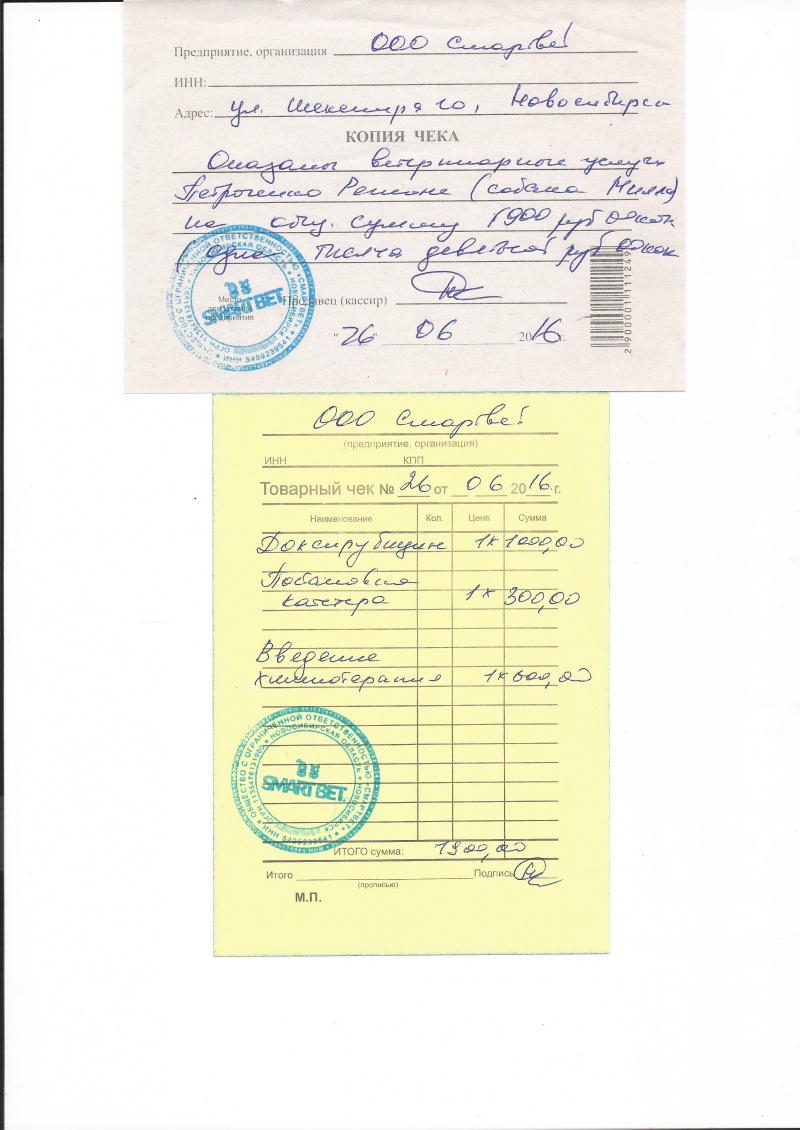 Предприятие, организация ООО Смартвет
ИНН:
Адрес: ул. Шекспира 10, Новосибирск
КОПИЯ ЧЕКА
Оказаны ветеринарные услуги
Петроченко Регине (собака Милла)
на общ. сумму 1900 руб 00 коп
Одна тысяча девятьсот руб 00 коп
Место для штампа предприятия
Продавец (кассир)
"26" 06 2016 г.
ОБЩЕСТВО С ОГРАНИЧЕННОЙ ОТВЕТСТВЕННОСТЬЮ «СМАРТВЕТ»
НОВОСИБИРСКАЯ ОБЛАСТЬ НОВОСИБИРСК
SMARTВЕТ
ИНН 5409239541
ОГРН 1135476131900
2 900001 11124
ООО Смартвет
(предприятие, организация)
ИНН КПП
Товарный чек № 26 от 06 2016 г.
Наименование Кол. Цена Сумма
Доксирубицин 1х 1000,00
Постановка
катетера 1х 300,00
Введение
химиотерапия 1х 600,00
ОБЩЕСТВО С ОГРАНИЧЕННОЙ ОТВЕТСТВЕННОСТЬЮ «СМАРТВЕТ»
НОВОСИБИРСКАЯ ОБЛАСТЬ НОВОСИБИРСК
SMARTВЕТ.
ИНН 5409239541
ОГРН 1135476131900
ИТОГО сумма: 1900,00
Итого Подпись
(прописью)
М.П.